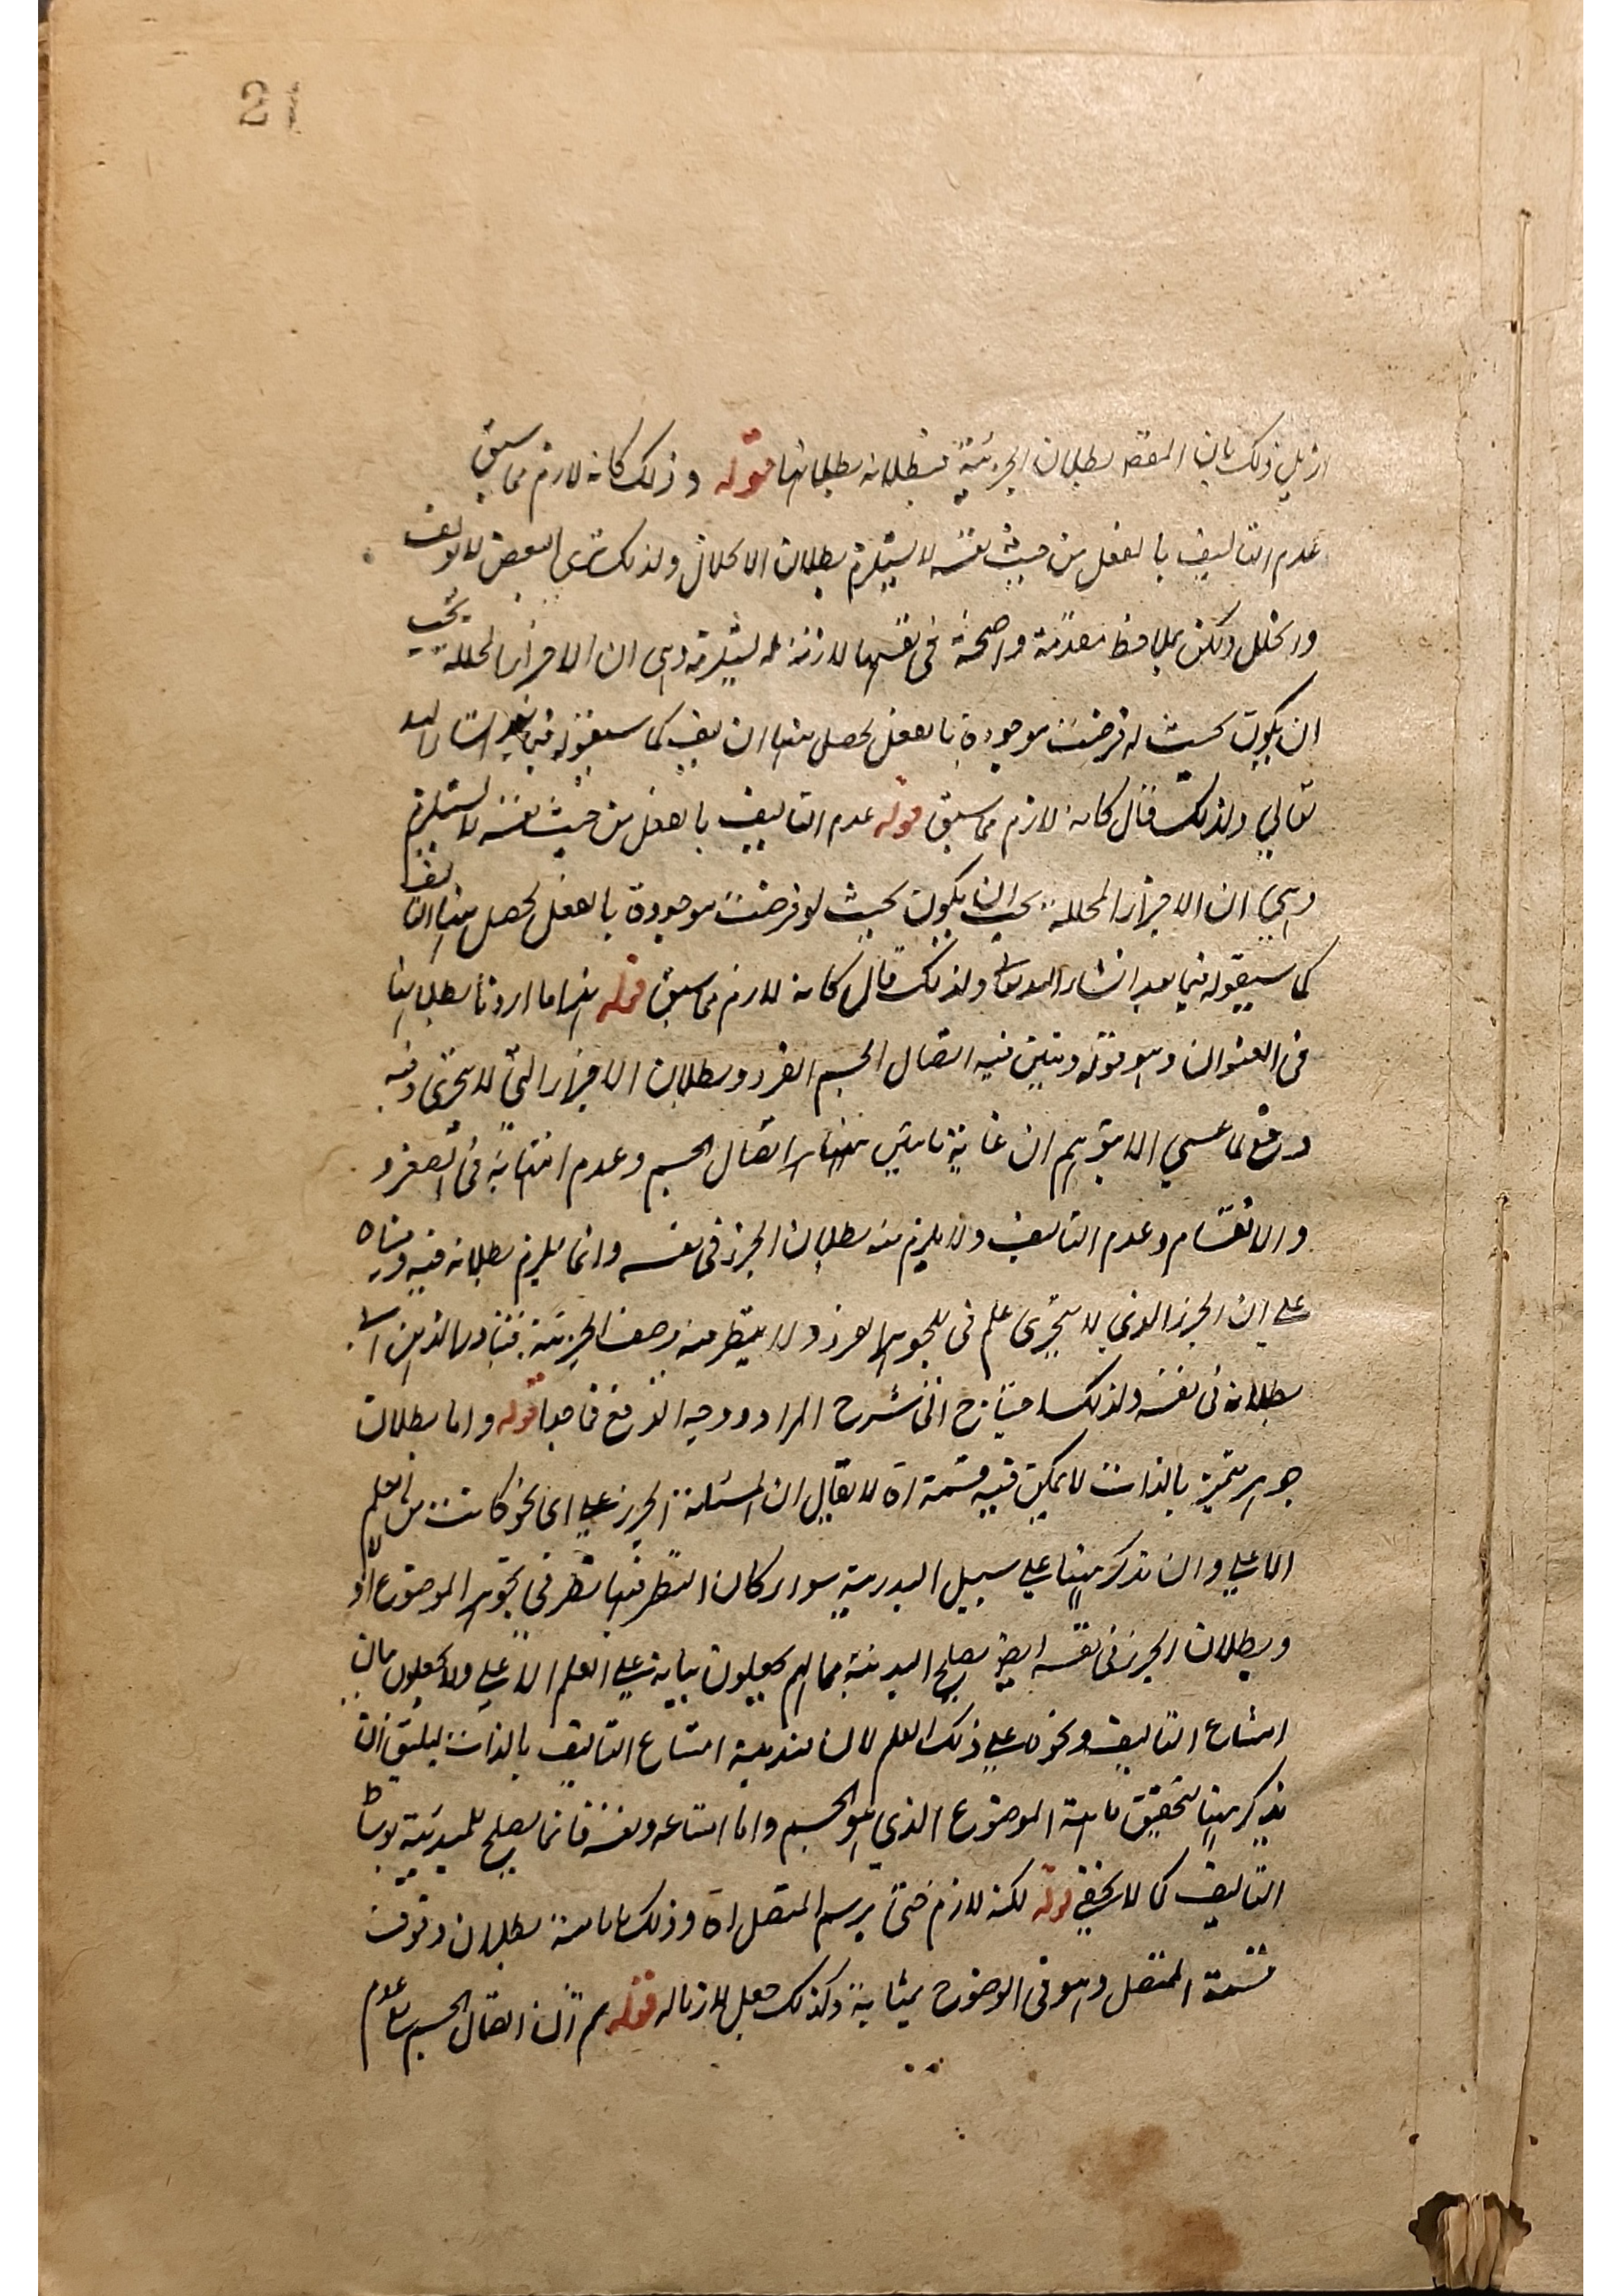 21
ازيل ذلك بان المقصد بطلان الجزئية فبطلانه بطلانها قوله وذلك كانه لازم مما سبق
عدم التاليف بالفعل من حيث نفسه لا يستلزم بطلان الانحلال ولذلك ترى البعض لا يولف
وانحلل ولكن بملاحظة مقدمة واضحة في نفسها لازمة له يستلزمه وهي ان الاجزاء المحللة يجب
ان يكون بحيث لو فرضت موجودة بالفعل لحصل منها ان ليف كما سيقوله فيما بعد انشاء الله
تعالي ولذلك قال كانه لازم مما سبق قوله عدم التاليف بالفعل من حيث نفسه لا يستلزم
وهي ان الاجزاء المحللة يجب ان يكون بحيث لو فرضت موجودة بالفعل لحصل منها التاليف
كما سيقوله فيما بعد انشاء الله تعالى ولذلك قال كانه لازم مما سبق قوله انما اردنا بطلانها
في العنوان وهو قوله ويتبين فيه اتصال الجسم المفرد وبطلان الاجزاء التي لا تتجزى وفيه
دفع لما عسى الا يتوهم ان غاية ما يتبين اتصال الجسم وعدم انتهائه في الصغر و
والانقسام وعدم التاليف ولا يلزم منه بطلان الجزء في نفسه وانما يلزم بطلانه فيه
على ان الجزء الذي لا يتجزى علم في الجوهر الفرد ولا ينتظر منه وصف الجزئية فتبادر الذهن الى
بطلانه في نفسه ولذلك احتاج الى شرح المراد ووجه الدفع قوله واما بطلان
جوهر متحيز بالذات لا يمكن فيه قسمة اه لا يقال ان المسئلة الجزء على اي نحو كانت من العلم
الاعلى وان تذكر هنا على سبيل المبدئية سواء كان النظر فيها نظر في تجوهر الموضوع او لا
وبطلان الجزء في نفسه ايضا يصلح المبدئية فما لهم يجعلون بيانه على العلم الاعلى ولا يجعلون بيان
امتناع التاليف ونحوه على ذلك العلم لان امتناع التاليف بالذات يليق ان
يذكر هنا لتحقيق ماهية الموضوع الذي هو الجسم واما امتناعه ونفسه فانما يصلح للمبدئية بوساطة
التاليف كما لا يخفى قوله لكنه لازم حتى يرسم المتصل اه وذلك بطلان وقوف
قسمة المتصل وهو في الوضوح بمثابة وكذلك جعل للازاله قوله ثم ان اتصال الجسم عدم